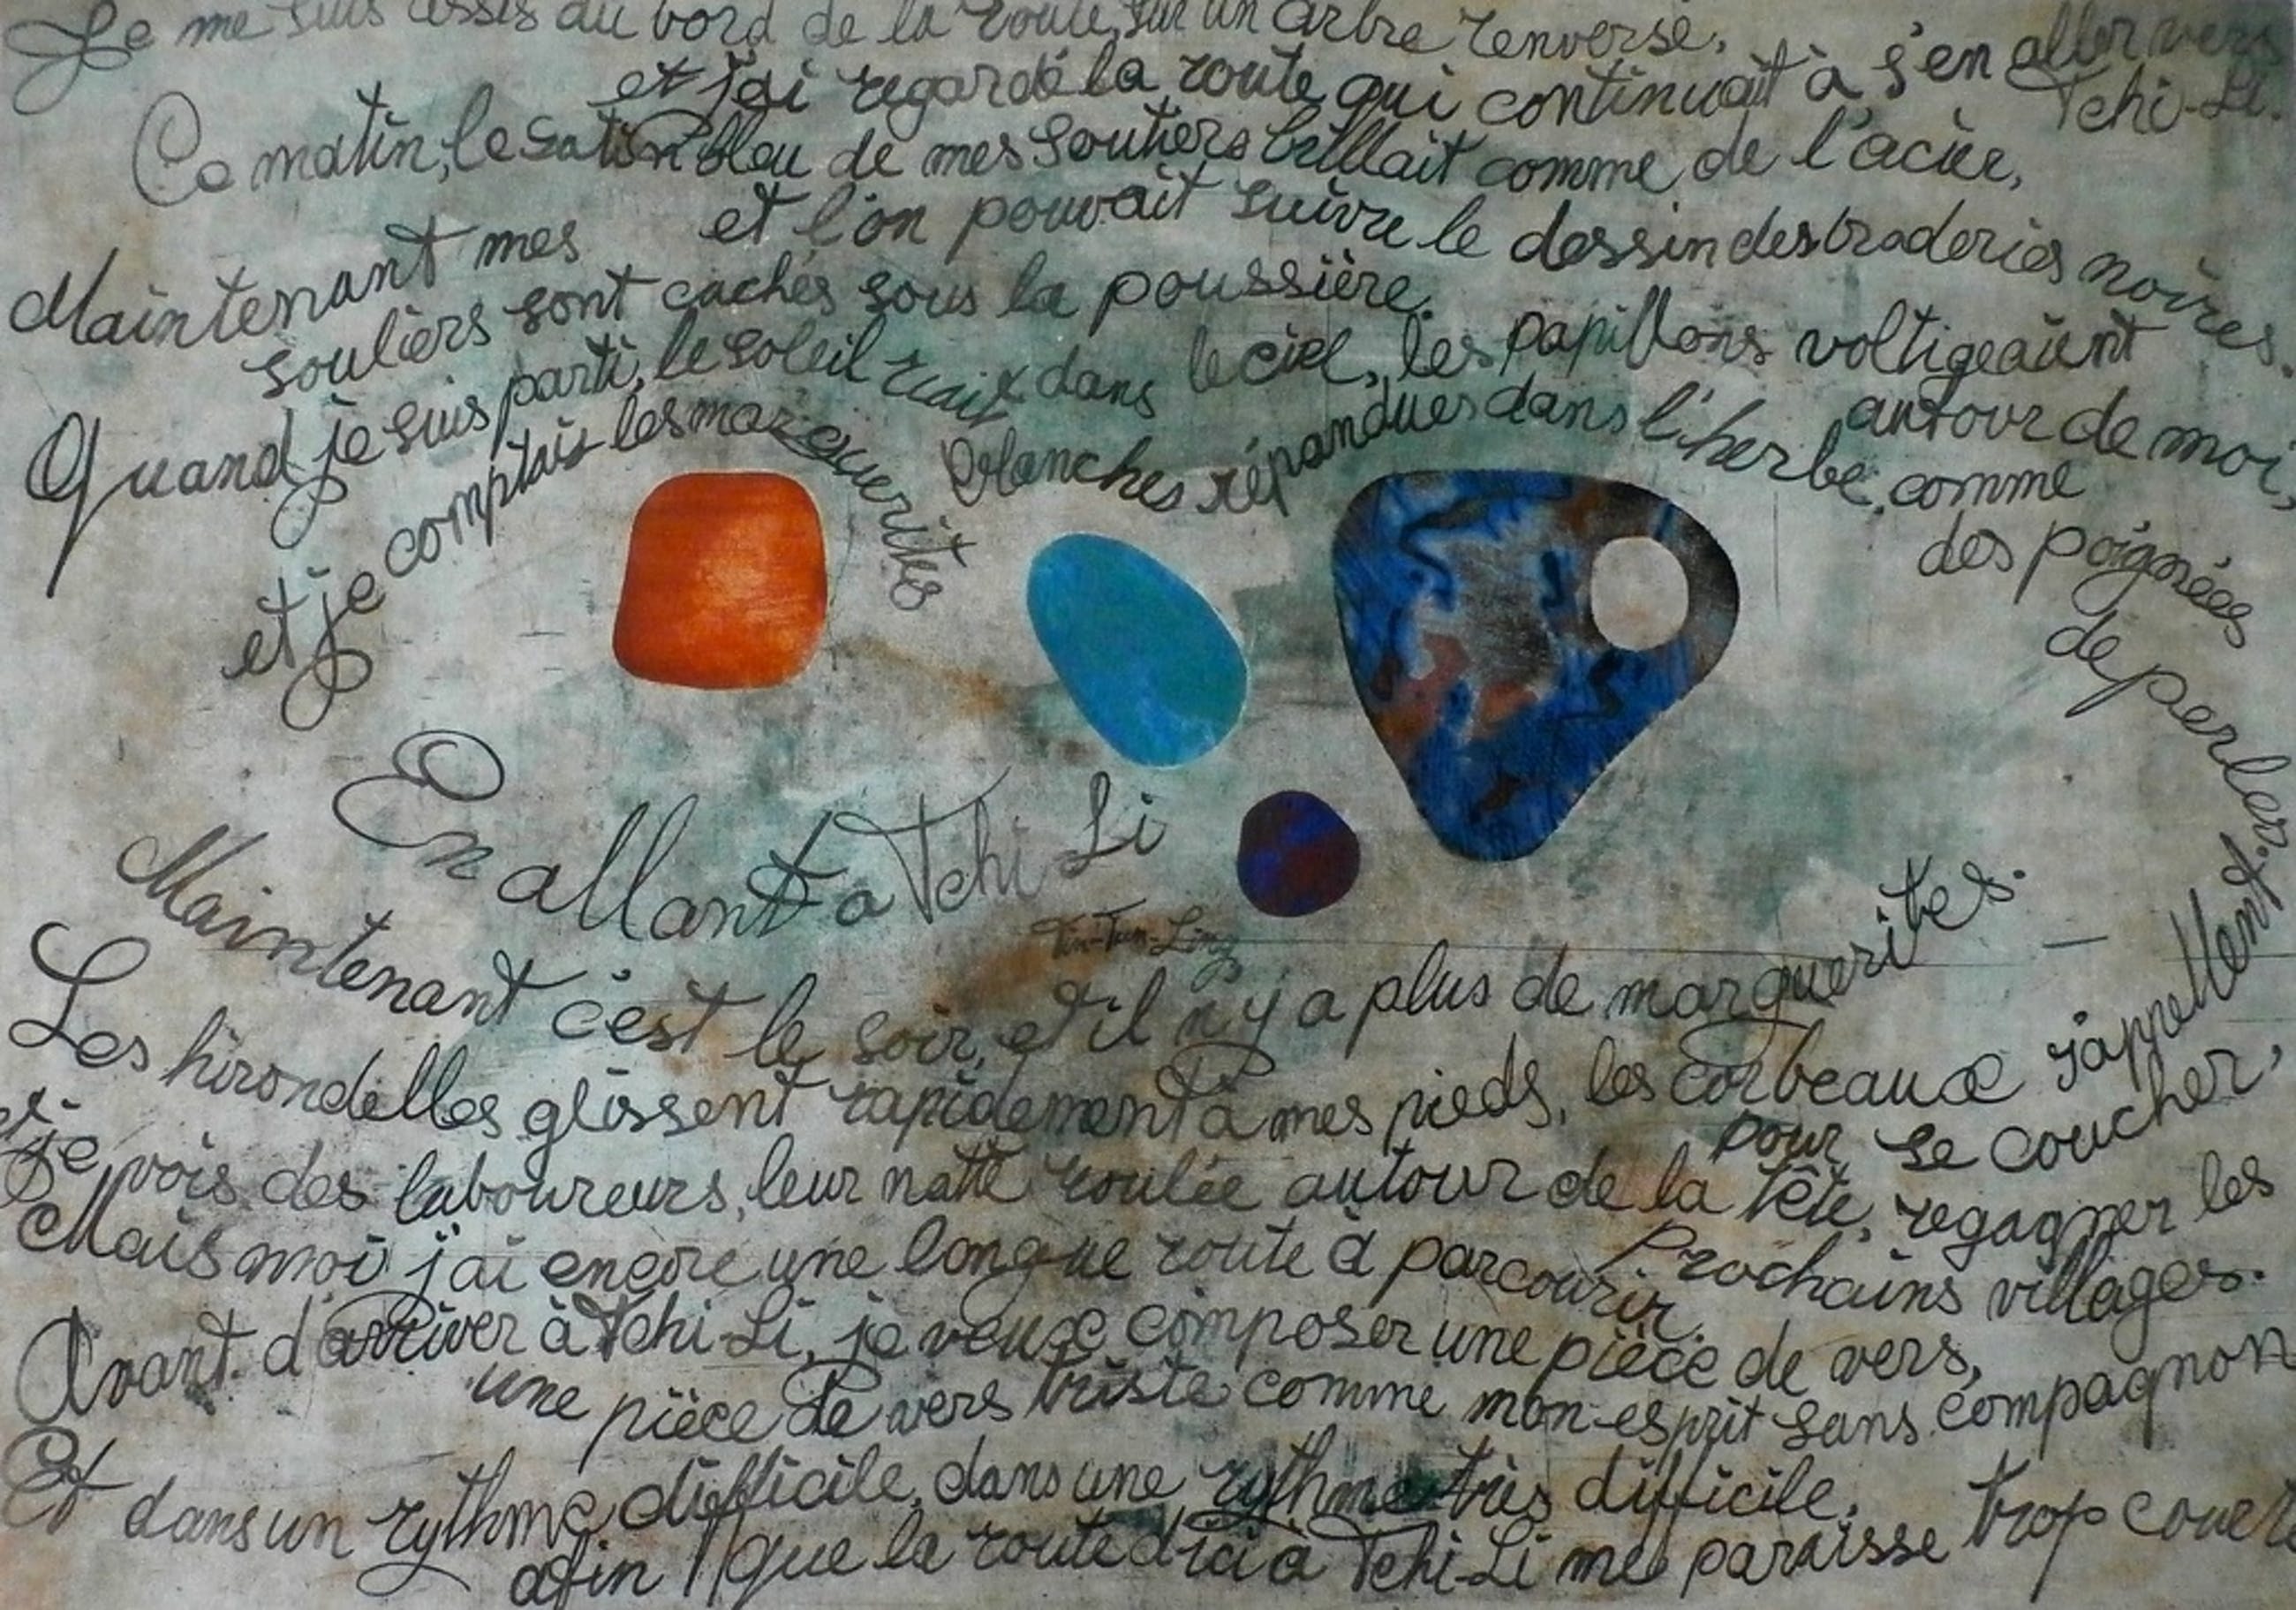 Je me suis assis au bord de la route, sur un arbre renversé,
et j'ai regardé la route qui continuait à s'en aller vers
Tchi-Li.
Ce matin, le satin bleu de mes souliers brillait comme de l'acier,
et l'on pouvait suivre le dessin des broderies noires.
Maintenant mes
souliers sont cachés sous la poussière.
Quand je suis parti, le soleil riait dans le ciel, les papillons voltigeaient
autour de moi,
et je comptais les marguerites
blanches répandues dans l'herbe, comme
des poignées
de perles.
En allant a Tchi Li
Tin-Tun-Ling
Maintenant c'est le soir, et il n'y a plus de marguerites.
Les hirondelles glissent rapidement à mes pieds, les corbeaux s'appellent
pour se coucher,
et je vois des laboureurs, leur natte roulée autour de la tête, regagner les
prochains villages.
Mais moi j'ai encore une longue route à parcourir.
Avant d'arriver à Tchi-Li, je veux composer une pièce de vers,
une pièce de vers triste comme mon esprit sans compagnon
Et dans un rythme difficile, dans une rythme très difficile,
afin que la route d'ici à Tchi-Li me paraisse trop court